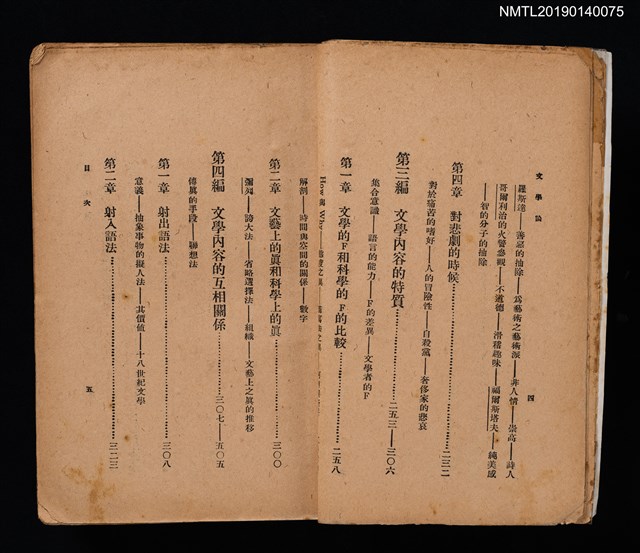 NMTL20190140075
文學論
羅斯達——善惡的抽除——爲藝術之藝術派——非人情——崇高——詩人
哥爾利治的火警參觀——不道德——滑稽趣味——福爾斯塔夫——純美感
——智的分子的抽除
第四章 對悲劇的時候……二三二
對於痛苦的嗜好——人的冒險性——自殺黨——奢侈家的悲哀
第三編 文學內容的特質……二五三——三〇六
集合意識——語言的能力——F的差異——文學者的F
四
第一章 文學的F和科學的F的比較……二五八
How與Why
解剖——時間與空間的關係——數字
第二章 文藝上的眞和科學上的眞……三〇〇
彌勒——誇大法——省略選擇法——組織——文藝上之眞的推移
第四編 文學內容的互相關係……三〇七——五〇五
傳眞的手段——聯想法
第一章 射出語法……三〇八
意義——抽象事物的擬人法——其價値——十八世紀文學
第二章 射入語法……三二三
目次
五